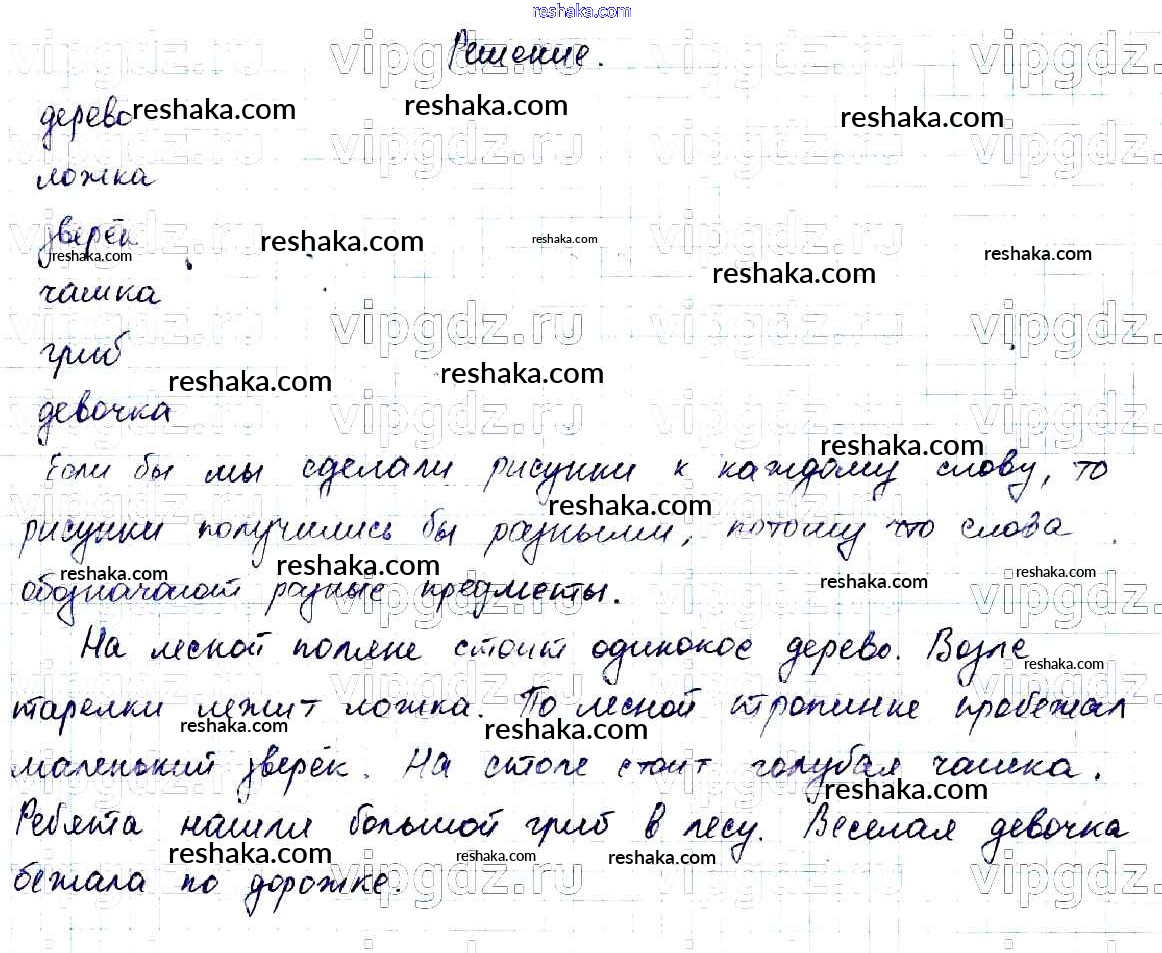 reshaka.com
Решение.
дерево
ложка
зверёк
чашка
гриб
девочка
Если бы мы сделали рисунки к каждому слову, то
рисунки получились бы разными, потому что слова
обозначают разные предметы.
На лесной поляне стоит одинокое дерево. Возле
тарелки лежит ложка. По лесной тропинке пробежал
маленький зверёк. На столе стоит голубая чашка.
Ребята нашли большой гриб в лесу. Веселая девочка
бежала по дорожке.